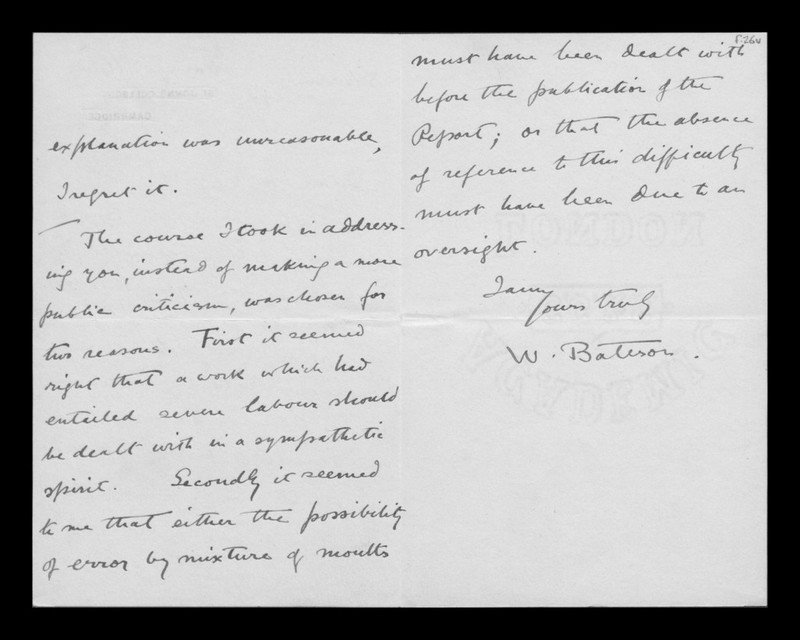 explanation was unreasonable,
I regret it.
The course I took in address-
ing you, instead of making a more
public criticism, was chosen for
two reasons. First it seemed
right that a work which had
entailed severe labour should
be dealt with in a sympathetic
spirit. Secondly it seemed
to me that either the possibility
of error by mixture of moults
must have been dealt with
before the publication of the
Report; or that the absence
of reference to this difficulty
must have been due to an
oversight.
I am
Yours truly
W. Bateson.